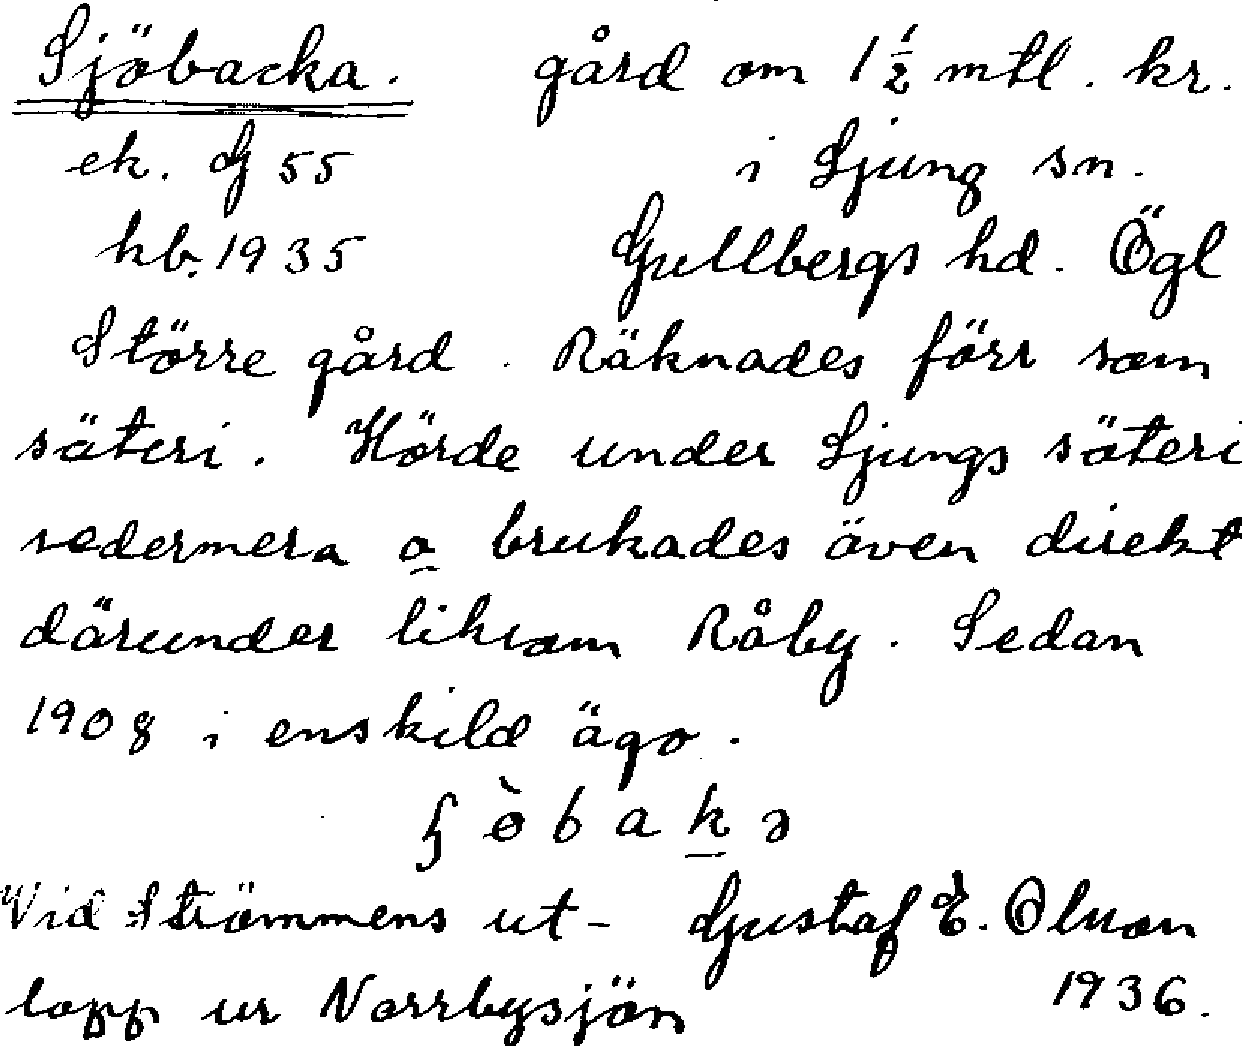 Sjöbacka. gård om 1 1/2 mtl. kr.
ek. G 55 i Ljung sn.
hb. 1935 Gullbergs hd. Ögl
Större gård. Räknades förr som
säteri. Hörde under Ljungs säteri
sedermera o brukades även direkt
därunder liksom Råby. Sedan
1908 i enskild ägo.
bakə
Vid Strömmens ut- Gustaf E. Olson
lopp ur Norrbysjön 1936.